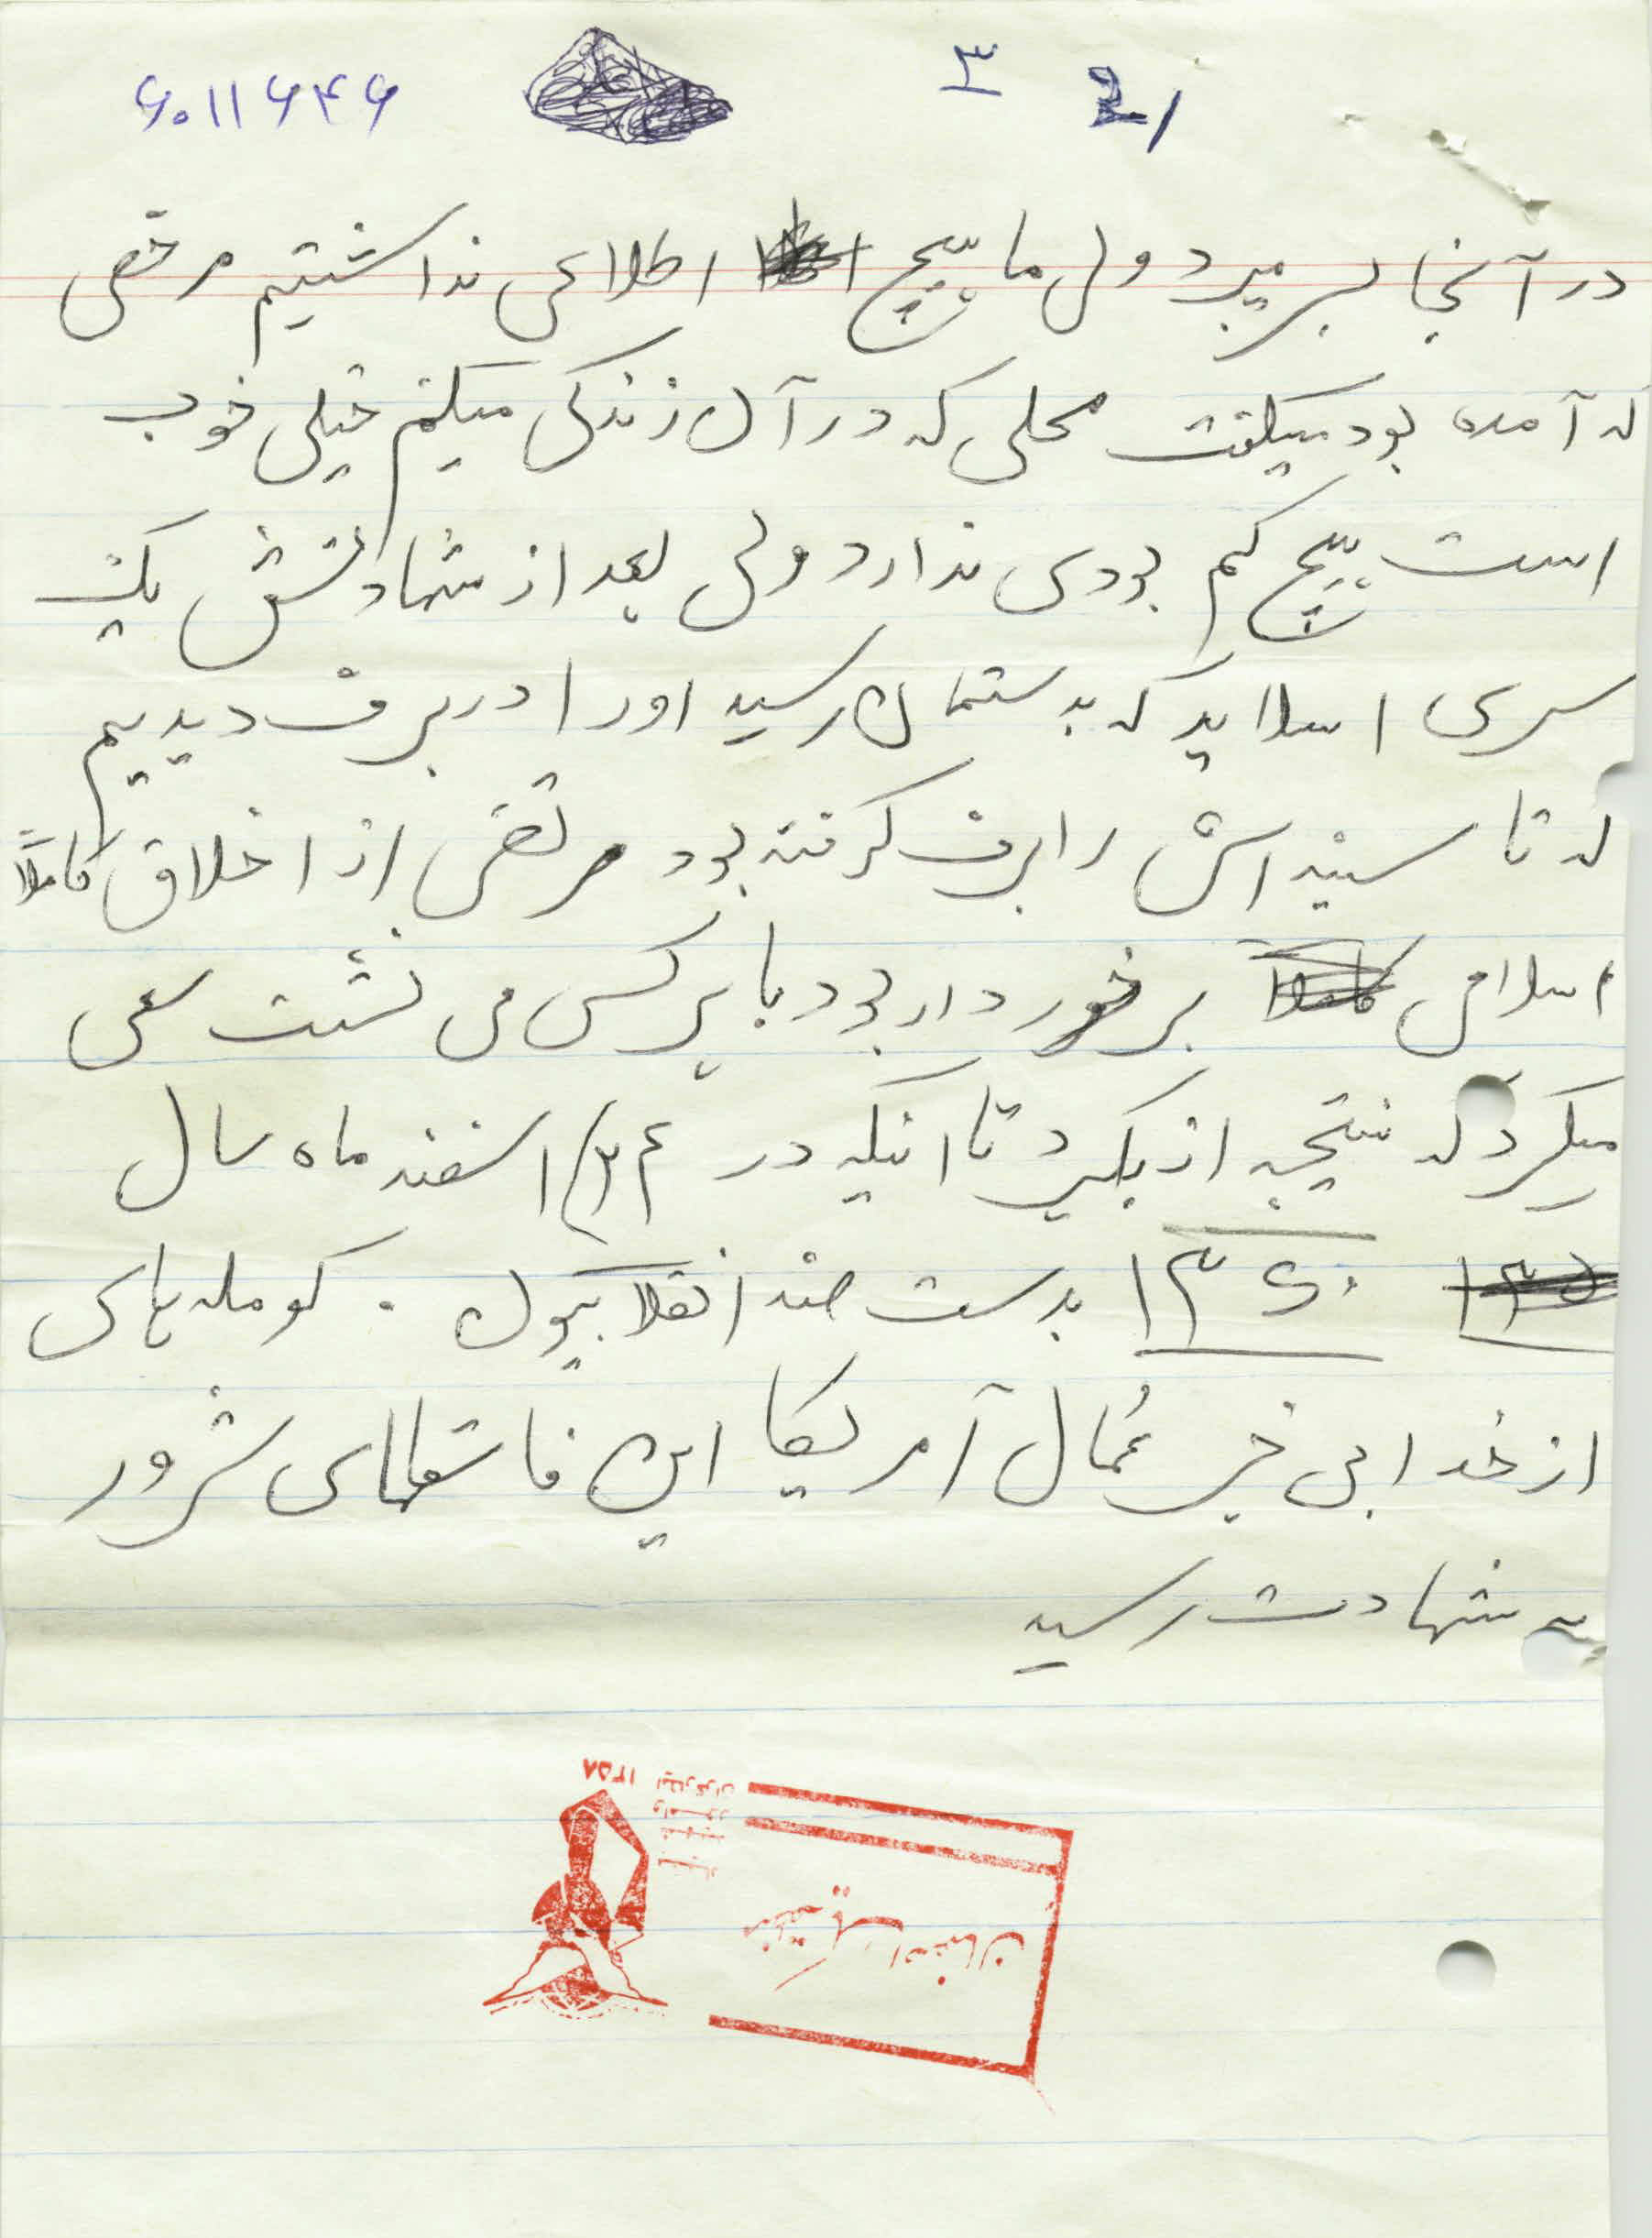 ۳ 21
۶۰۱۱۶۴۶
در آنجا بسر میبرد ولی ما هیچ اطلاعی نداشتیم مرخصی
که آمده بود میگفت محلی که در آن زندگی میکنم خیلی خوب
است هیچ کم بودی ندارد ولی بعد از شهادتش یک
سری اسلاید که بدستمان رسید او را در برف دیدیم
که تا سینه اش را برف گرفته بود مرتضی از اخلاق کاملاً
اسلامی برخوردار بود با هر کس می نشست سعی
میکرد که نتیجه از بگیرد تا اینکه در اسفند ماه سال
۱۳۶۰ بدست ضد انقلابیون . کومله های
از خدا بی خبر عُمال آمریکا این فاشهای شرور
به شهادت رسید
۱۳۵۸